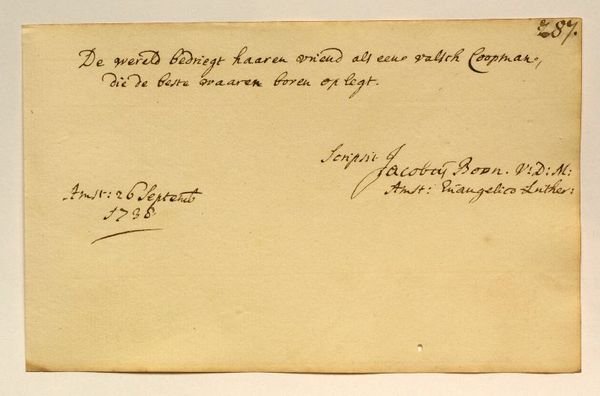 287.
De wereld bedriegt haaren vriend als eene valsch Coopman,
die de beste waaren boven op legt.
Scripsit Jacobus Boon. V: D: M:
Amst: Evangelico Luther:
Amst: 26 Septemb
1738